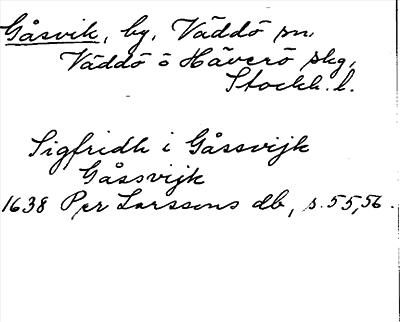 Gåsvik, by, Väddö sn,
Väddö o Häverö skg,
Stockh. l.
Sigfridh i Gåssvijk
Gåssvijk
1638 Per Larssons db, s. 55, 56.